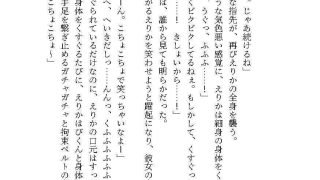 じゃあ続けるね」
な指先が、再びえりかの全身を襲う。
うな気色悪い感覚に、えりかは細身の身体をく
うぐっ、ふふふ……！」
てピクピクしてるねぇ。もしかして、くすぐっ
い……！　きしょいから……！」
は、誰から見ても明らかだった。
がるえりかを笑わせようと躍起になり、彼女の
ーん。こちょこちょで笑っちゃいなよー」
へ、へいきだしっ……んくふふふふふ
ぐられているだけなのに、えりかの口元はすっ
身体をくすぐるたびに、えりかはびくんと身体
手足を繋ぎ止めるガチャガチャと拘束ベルトの
こちょこちょー！」